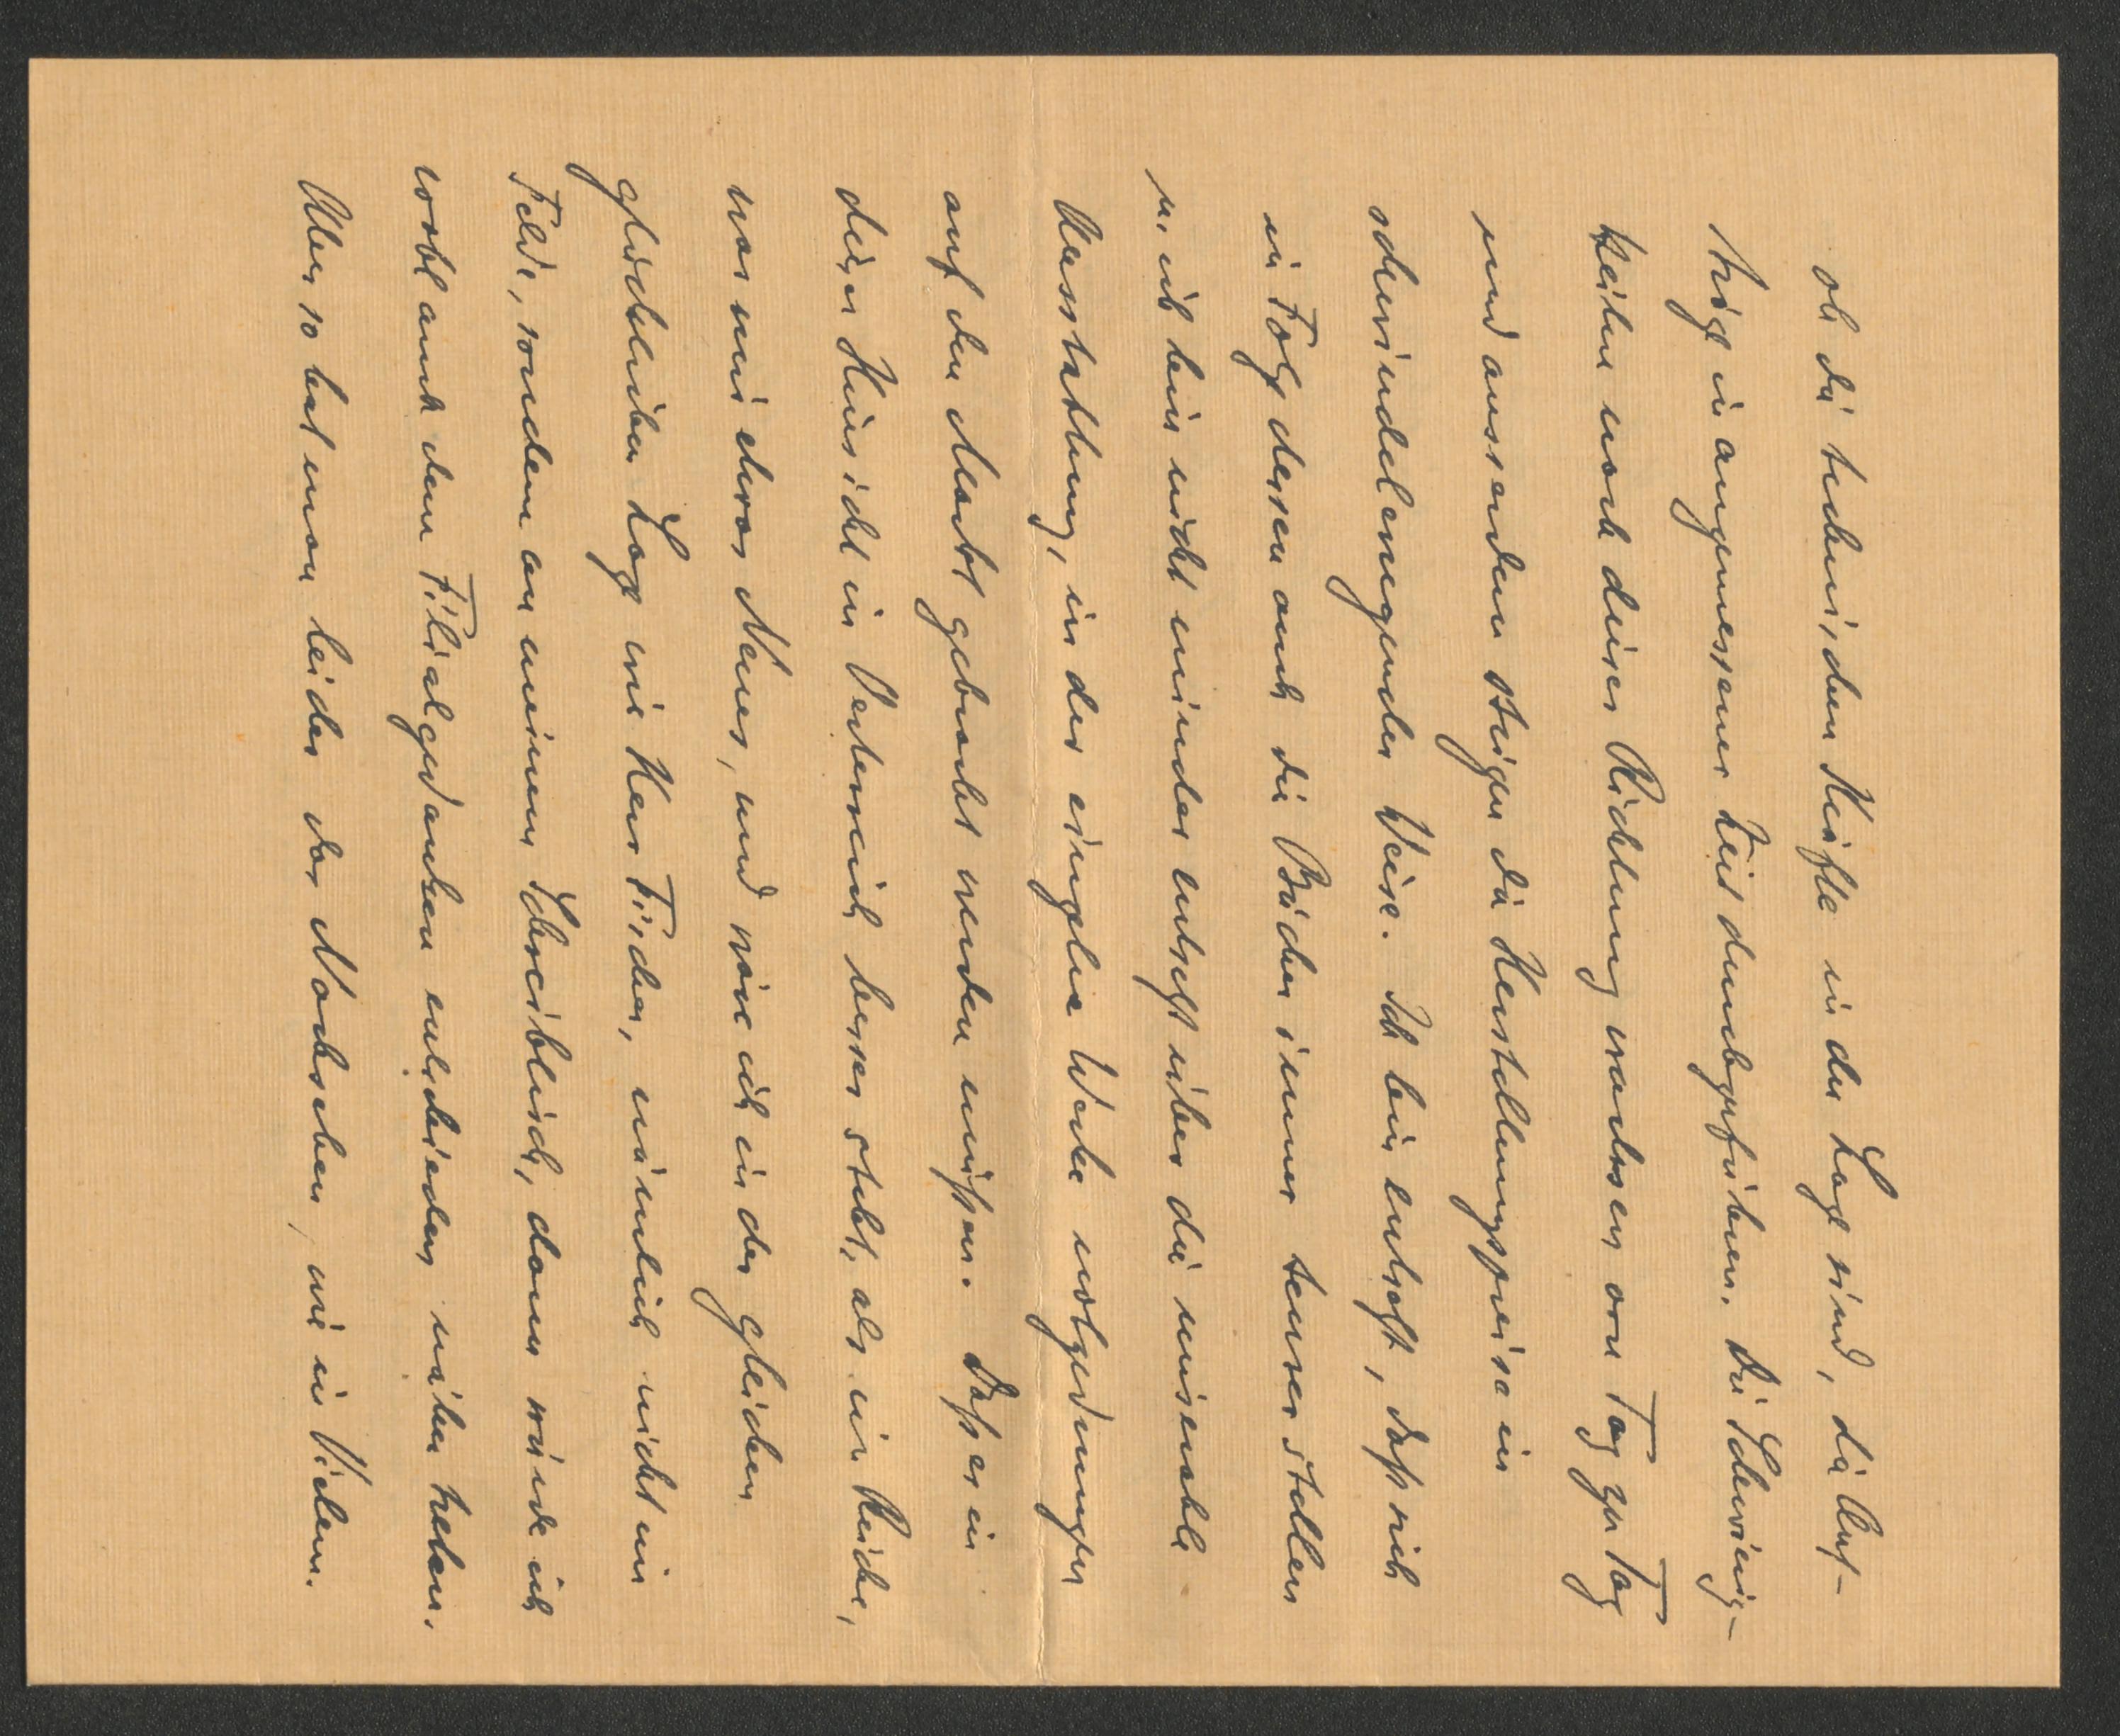 ob die technischen Kräfte in der Lage sind, die Auf-
träge in angemessener Zeit durchzuführen. Die Schwierig-
keiten nach dieser Richtung wachsen von Tag zu Tag
und ausserdem steigen die Herstellungspreise in
schwindelerregender Weise. Ich bin entsetzt, dass sich
in Folge dessen auch die Bücher immer teurer stellen
u. ich bin nicht minder entsetzt über die miserable
Ausstattung, in der einzelne Werke notgedrungen
auf den Markt gebracht werden müssen. Dass es in
dieser Hinsicht in Oesterreich besser steht, als im Reiche,
war mir etwas Neues, und wäre ich in der gleichen
glücklichen Lage wie Herr Fischer, nämlich nicht im
Felde, sondern an meinem Schreibtisch, dann würde ich
wohl auch dem Filialgedanken entschieden näher treten.
Aber so hat man leider das Nachsehen, wie in Vielem.